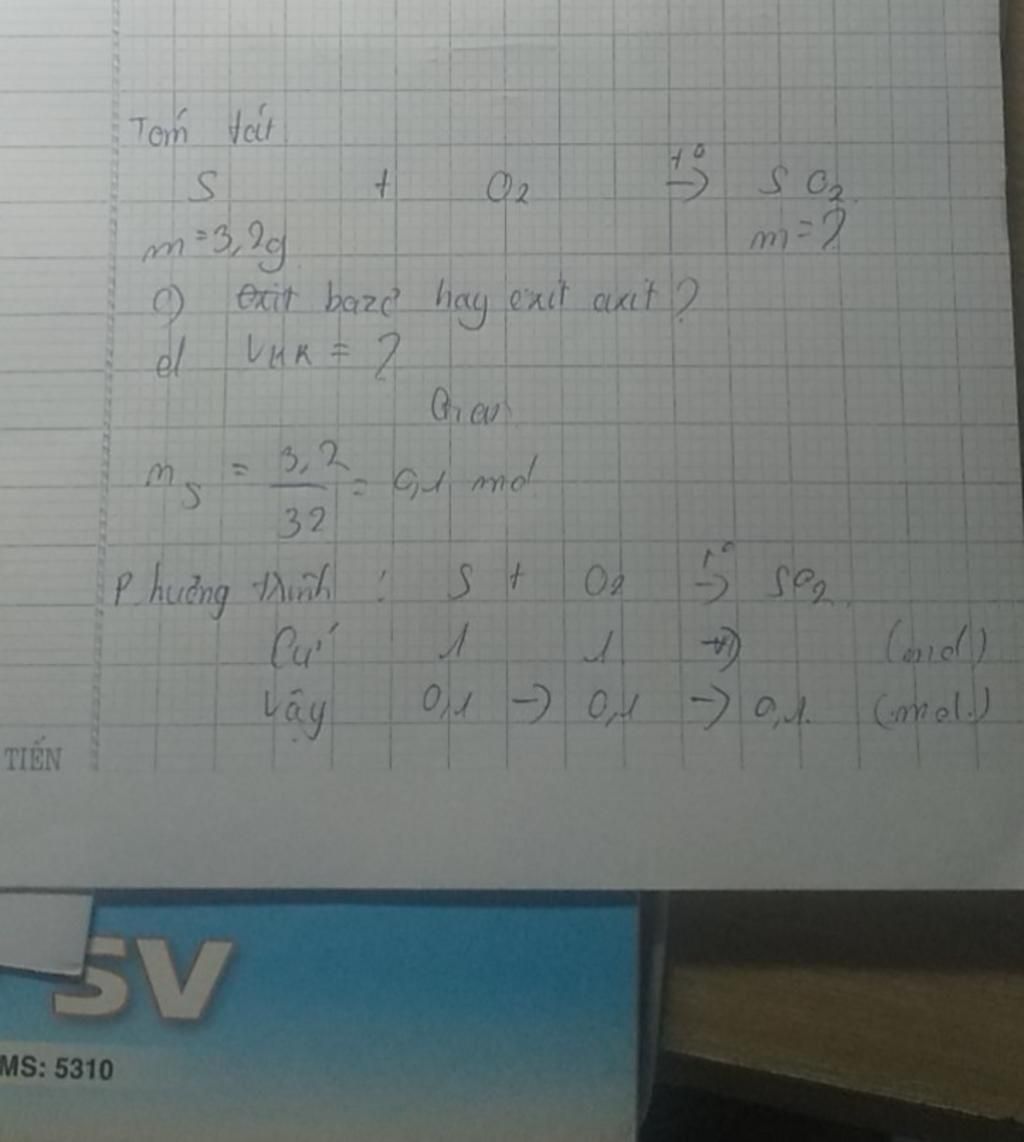 Tóm tắt
S + O2 t° → SO2
m = 3,2g m = ?
c) oxit bazơ hay oxit axit ?
d) VKK = ?
Giải
nS = 3,2 / 32 = 0,1 mol
Phương trình : S + O2 t° → SO2
Cứ 1 1 (mol)
Vậy 0,1 → 0,1 → 0,1 (mol)
TIẾN
SV
MS: 5310